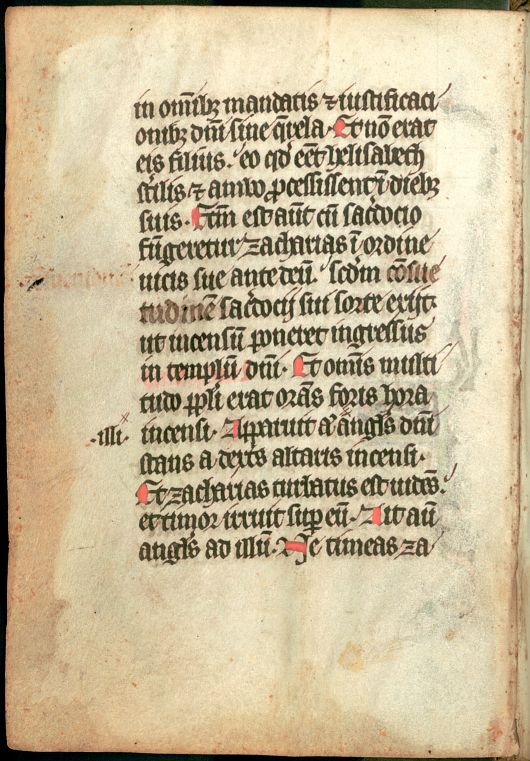 in om̄ibꝫ mandatis ⁊ iustificaci
onibꝫ dn̄i sine q̄rela. Et nō erat
eis filius. eo qd̛ eēt helisabeth
st̛ilis ⁊ ambo ꝓcessissent ī diebꝫ
suis. Ctm̄ est aūt cū sac̛docio
fūgeretur zacharias ī ordine
uicis sue ante deū. scd̄m cōsue
tudinē sac̛docij sui sorte exijt
ut incensū poneret ingressus
in templū dn̄i. Et omīs multi
tudo ppl̄i erat orās foris hora
incensi. Apparuit a͛ angl̄s dn̄i
·illi·
stans a dext͛s altaris incensi.
Et zacharias turbatus est uidēs.
et timor irruit suꝑ eū. Ait aū
angl̄s ad illū. Ne timeas za